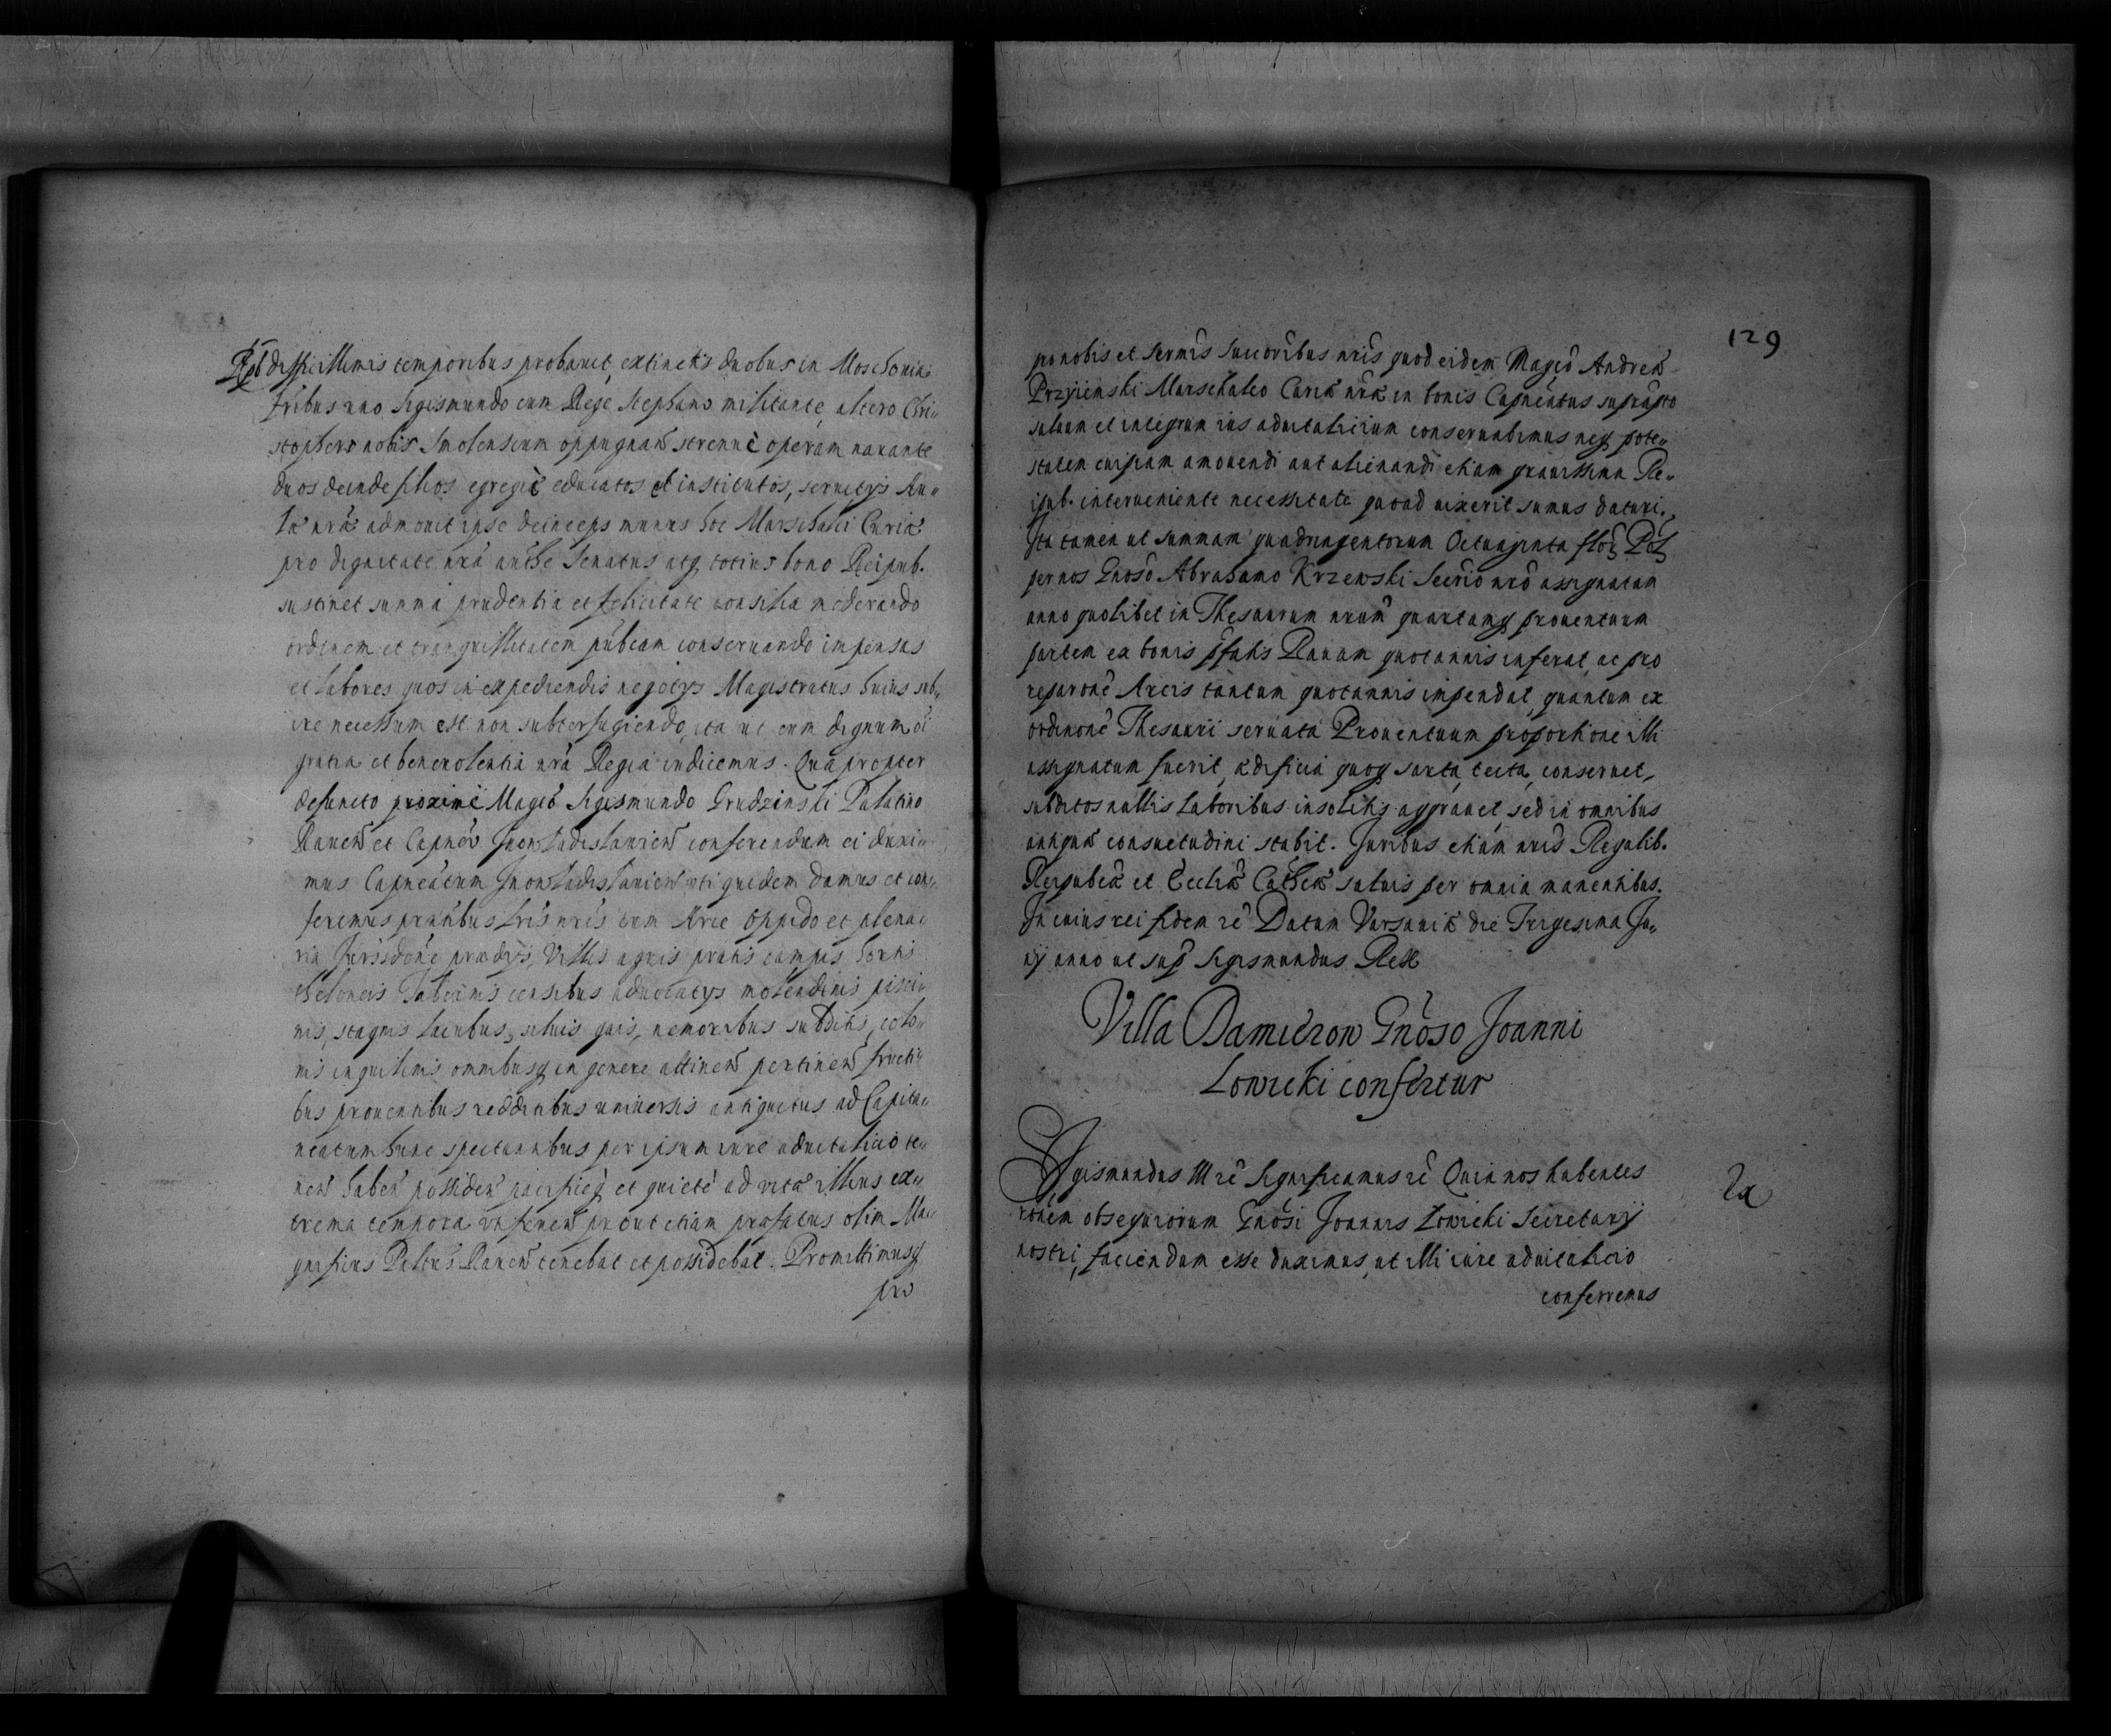 Reipub difficillimis temporibus probauit, extinctis duobus in Moschouia
fribus uno Sigismundo cum Rege Stephano militante, altero Chri„
stophero nobis Smolenscum oppugnan strenuè operam nauante
duos deinde filios egregiè educatos et institutos, seruitys Au„
læ nræ admouit ipse deinceps munus hoc Marschalci Curiæ
pro dignitate nrã authe Senatus atq totius bono Reipub.
sustinet summa prudentia et felicitate consilia moderando
ordinem et tranquillitatem pubcam conseruando impensas
et labores quos in expediendis negotys Magistratus huius sub„
ire necessum est non subterfugiendo, ita ut eum dignum oi
gratia et beneuolentia nrã Regia iudicemus. Quapropter
defuncto proximè Magco Sigismundo Grudzinski Palatino
Rauen et Capneo Inowladislauien conferendum ei duxi„
mus Capneatum Inowladislauien uti quidem damus et con„
ferimus prantibus lris nris cum Arce Oppido et plena„
ria Jurisdone prædys, Villis agris pratis campis hortis
theloneis Tabernis censibus aduocatys molendinis pisci„
nis, stagnis lacubus, siluis gais, nemoribus subditis, colo„
nis inquilinis omnibusq in genere attinen pertinen fructi„
bus prouentibus redditibus uniuersis antiquitus ad Capita„
neatum hunc spectantibus per ipsum iure aduitalicio te„
nen haben possiden pacificeq et quietè ad vitæ illius ex„
trema tempora utifruen prout etiam præfatus olim Ma„
gnificus Paltnus Rauen tenebat et possidebat. Promittimusq
pro
129
pro nobis et sermis succoribus nris quod eidem Magco Andreæ
Przyiemski Marschalco Curiæ nræ in bonis Capneatus supraspto
saluum et integrum ius aduitalicium conseruabimus neq pote„
statem cuipiam amouendi aut alienandi etiam grauissima Re„
ipub. interueniente necessitate quoad uixerit sumus daturi.
Ita tamen ut summam quadringentorum Octuaginta flor Pol
per nos Gnoso Abrahamo Krzewski Secrio nro assignatam
anno quolibet in Thesaurum nrum quartamq prouentuum
partem ex bonis pfatis Rauam quotannis inferat, ac pro
reparone Arcis tantum quotannis impendat, quantum ex
ordinone Thesauri seruata Prouentuum proportione illi
assignatum fuerit, ædificia quoq sarta, tecta, conseruet,
subditos nullis laboribus insolitis aggrauet, sed in omnibus
antiquæ consuetudini stabit. Juribus etiam nris Regalib.
Reipubcæ et Ecclíæ Cathcæ saluis per omnia manentibus.
In cuius rei fidem rc Datum Varsauiæ die Trigesima Ju„
nij anno ut sup Sigismundus Rex
Villa Damieron Gnoso Joanni
Lowicki confertur
Sigismundus III rc Significamus rc Quia nos habentes
ronem obsequiorum Gnosi Joannis Lowicki Secretarij
nostri, faciendum esse duximus, ut illi iure aduitalicio
conferremus